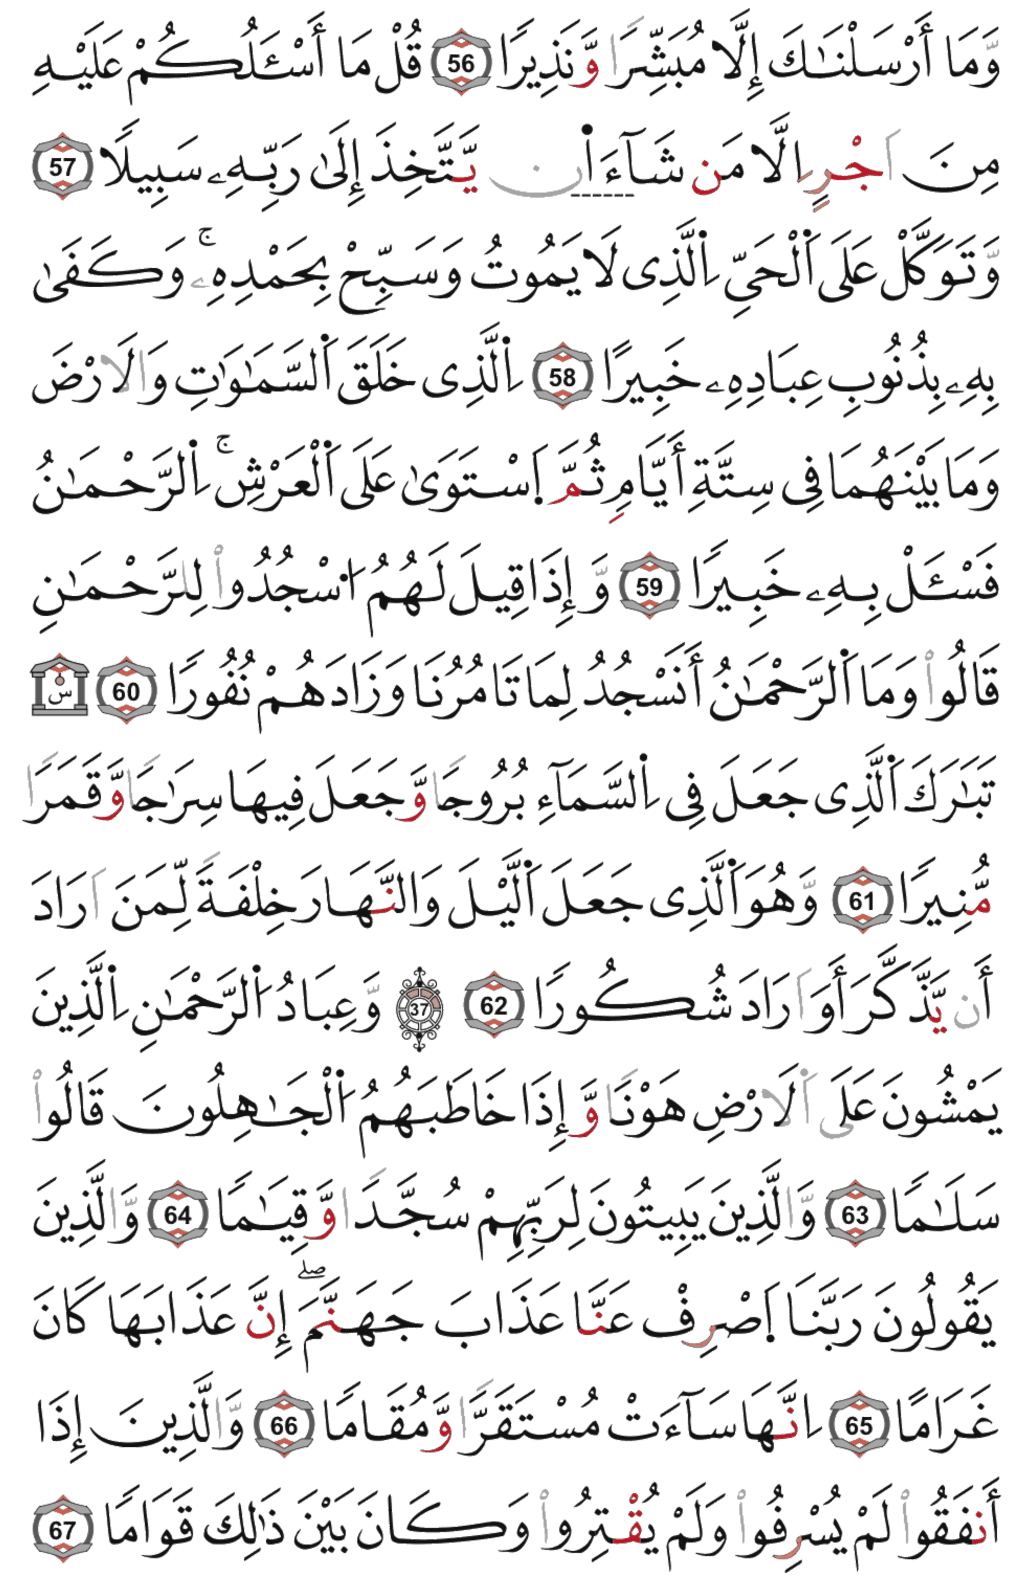 وَّمَا أَرْسَلْنَٰكَ إِلَّا مُبَشِّرًا وَّنَذِيرًا 56 قُلْ مَا أَسْـَٔلُكُمْ عَلَيْهِ
مِنَ اَجْرٍ اِلَّا مَن شَآءَ انْ يَّتَّخِذَ إِلَىٰ رَبِّهِۦ سَبِيلًا 57
وَّتَوَكَّلْ عَلَى اَ۬لْحَيِّ اِ۬لَّذِى لَا يَمُوتُ وَسَبِّحْ بِحَمْدِهِۦ ۚ وَكَفَىٰ
بِهِۦ بِذُنُوبِ عِبَادِهِۦ خَبِيرًا 58 اِ۬لَّذِى خَلَقَ اَ۬لسَّمَٰوَٰتِ وَالَارْضَ
وَمَا بَيْنَهُمَا فِى سِتَّةِ أَيَّامٍ ثُمَّ اَ۪سْتَوَىٰ عَلَى اَ۬لْعَرْشِ ۚ اِ۬لرَّحْمَٰنُ
فَسْـَٔلْ بِهِۦ خَبِيرًا 59 وَّإِذَا قِيلَ لَهُمُ اُ۟سْجُدُواْ لِلرَّحْمَٰنِ
قَالُواْ وَمَا اَ۬لرَّحْمَٰنُ أَنَسْجُدُ لِمَا تَامُرُنَا وَزَادَهُمْ نُفُورًا 60 س
تَبَٰرَكَ اَ۬لَّذِى جَعَلَ فِى اِ۬لسَّمَآءِ بُرُوجًا وَّجَعَلَ فِيهَا سِرَٰجًا وَّقَمَرًا
مُّنِيرًا 61 وَّهُوَ اَ۬لَّذِى جَعَلَ اَ۬لَّيْلَ وَالنَّهَارَ خِلْفَةً لِّمَنَ اَرَادَ
أَن يَّذَّكَّرَ أَوَ اَرَادَ شُكُورًا 62 37 وَّعِبَادُ اُ۬لرَّحْمَٰنِ اِ۬لَّذِينَ
يَمْشُونَ عَلَى اَ۬لَارْضِ هَوْنًا وَّإِذَا خَاطَبَهُمُ اُ۬لْجَٰهِلُونَ قَالُواْ
سَلَٰمًا 63 وَّالَّذِينَ يَبِيتُونَ لِرَبِّهِمْ سُجَّدًا وَّقِيَٰمًا 64 وَّالَّذِينَ
يَقُولُونَ رَبَّنَا اَ۪صْرِفْ عَنَّا عَذَابَ جَهَنَّمَ ۖ إِنَّ عَذَابَهَا كَانَ
غَرَامًا 65 اِنَّهَا سَآءَتْ مُسْتَقَرًّا وَّمُقَامًا 66 وَّالَّذِينَ إِذَا
أَنفَقُواْ لَمْ يُسْرِفُواْ وَلَمْ يُقْتِرُواْ وَكَانَ بَيْنَ ذَٰلِكَ قَوَامًا 67